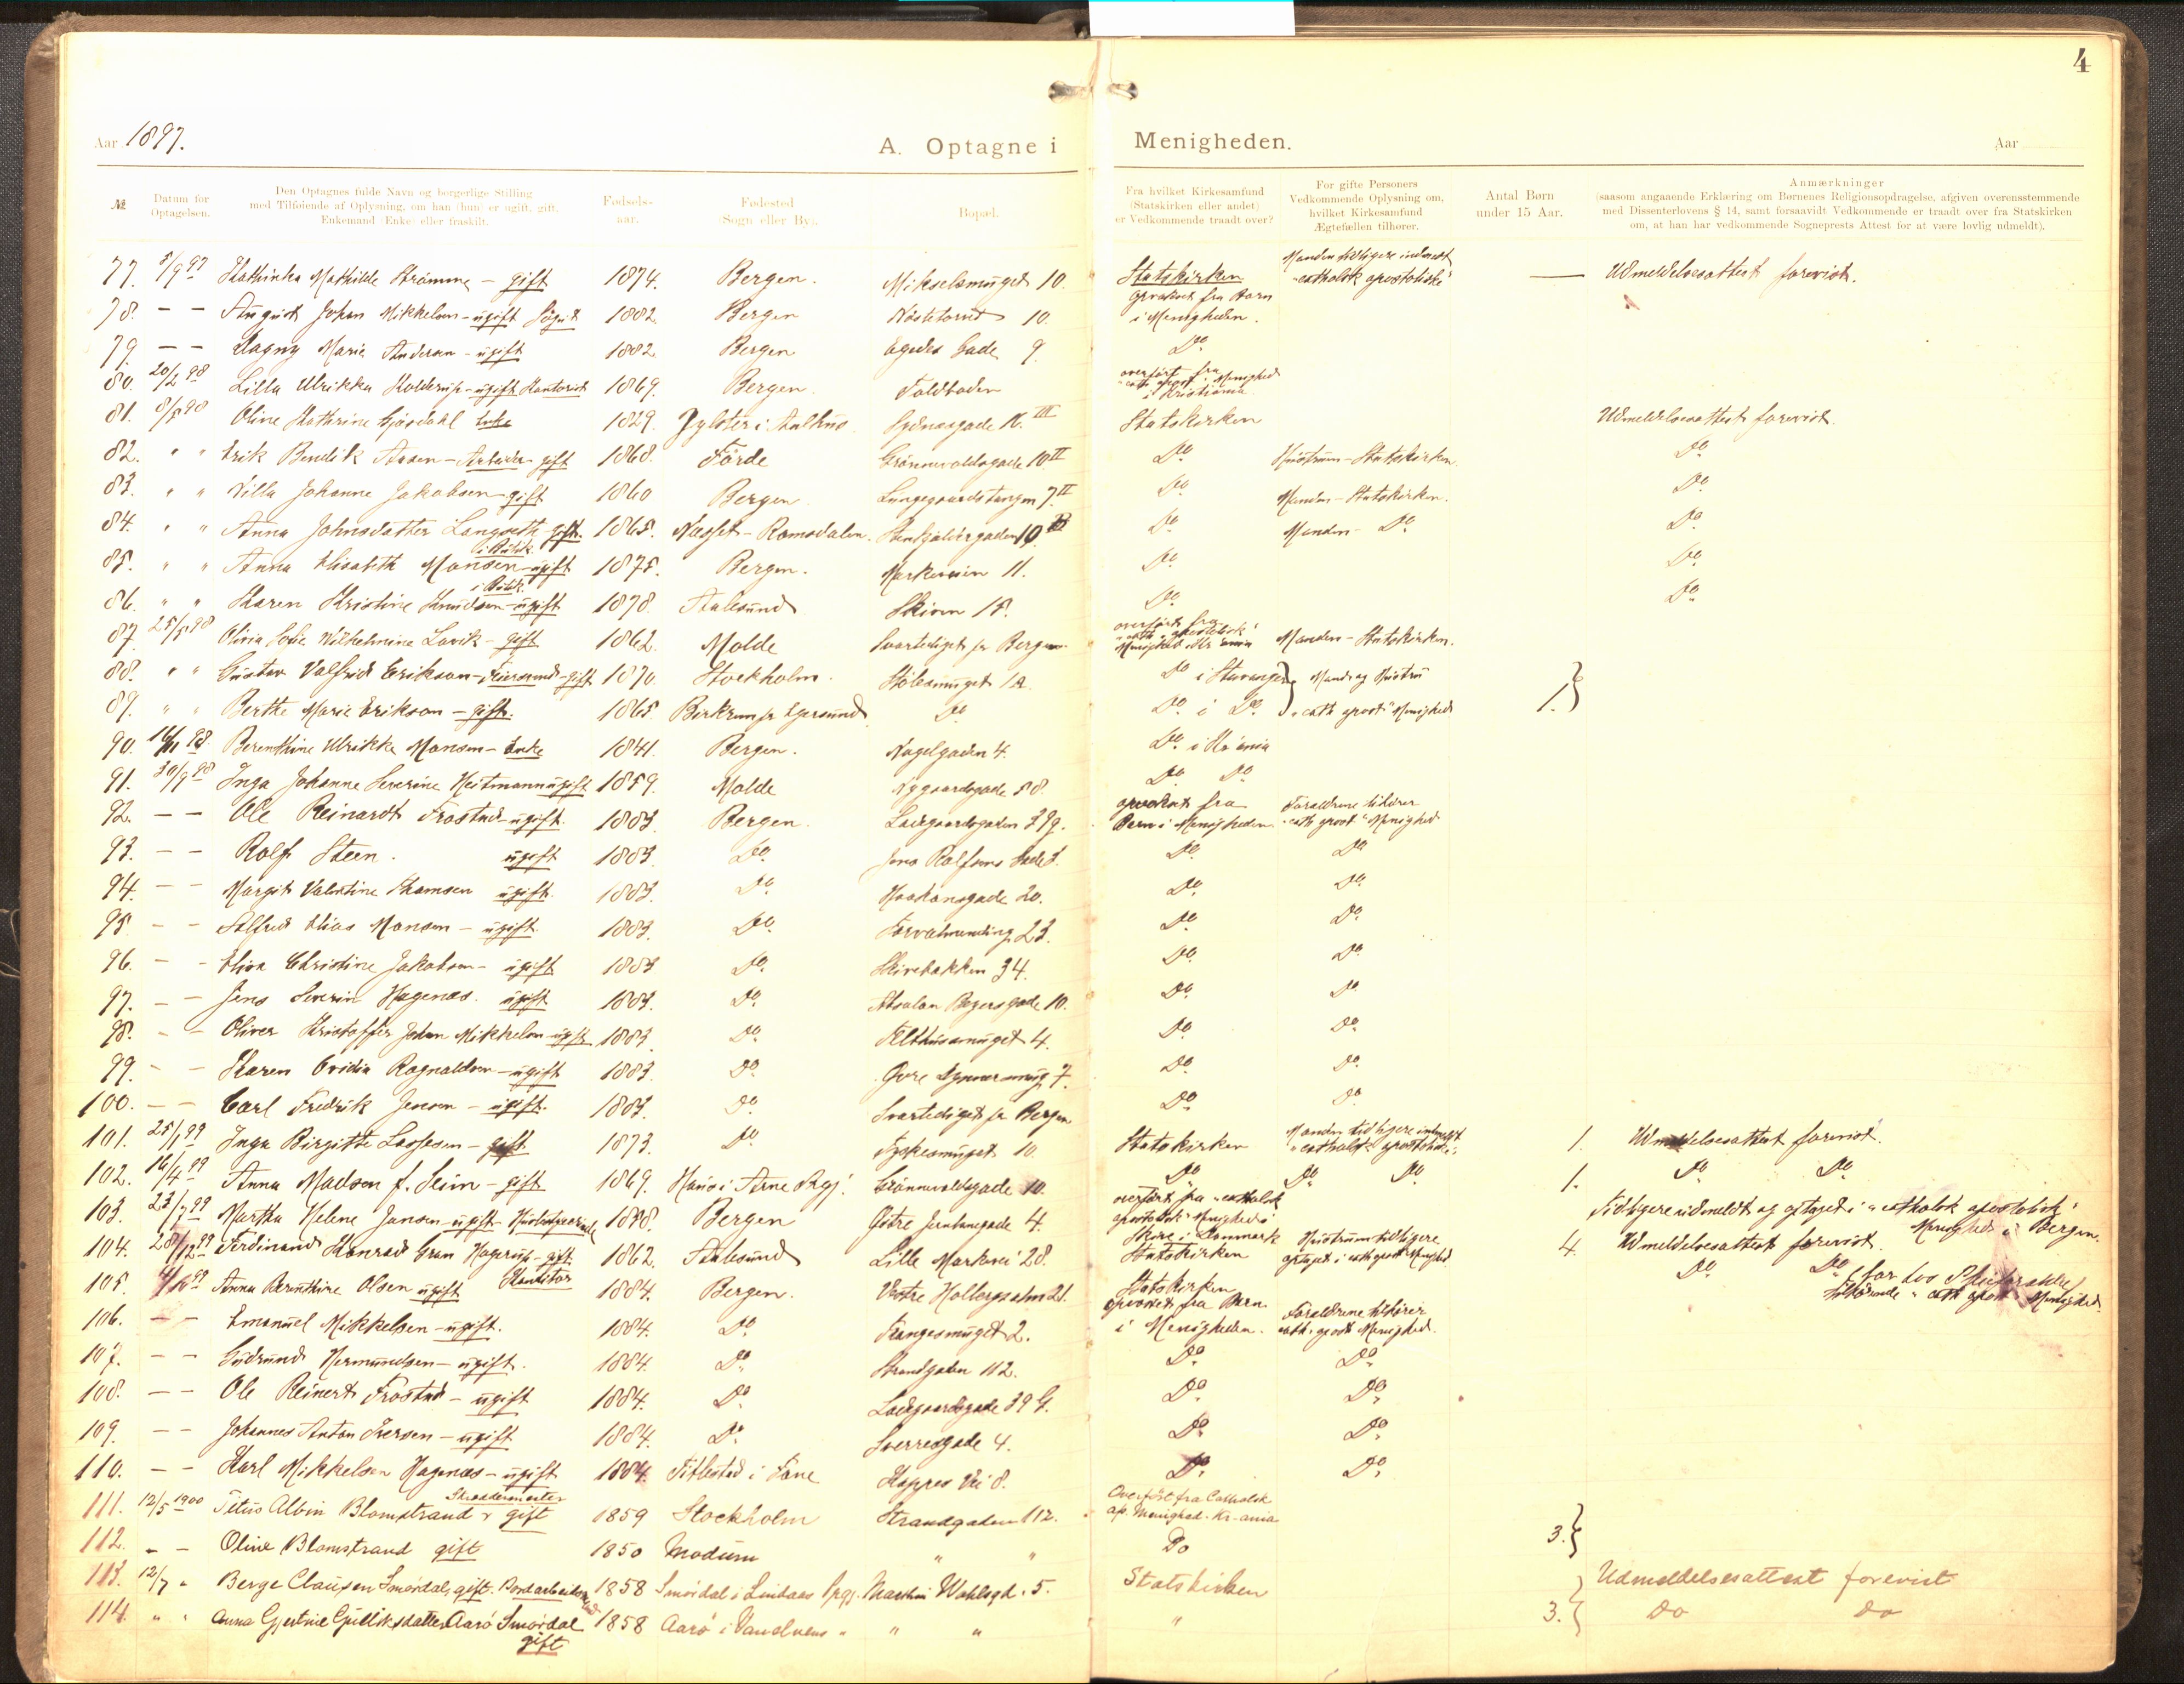 4
Aar 1897.
A. Optagne i Menigheden.
Aar
№
Datum for Optagelsen.
Den Optagnes fulde Navn og borgerlige Stilling
med Tilføiende af Oplysning, om han (hun) er ugift, gift,
Enkemand (Enke) eller fraskilt.
Fødsels-aar.
Fødested (Sogn eller By).
Bopæl.
Fra hvilket Kirkesamfund
(Statskirken eller andet)
er Vedkommende traadt over?
For gifte Personers
Vedkommende Oplysning om,
hvilket Kirkesamfund
Ægtefællen tilhører.
Antal Børn under 15 Aar.
Anmærkninger
(saasom angaaende Erklæring om Børnenes Religionsopdragelse, afgiven overensstemmende
med Dissenterlovens § 14, samt forsaavidt Vedkommende er traadt over fra Statskirken
om, at han har vedkommende Sogneprests Attest for at være lovlig udmeldt).
77. 5/9 97 Kathinka Mathilde Strømme - gift 1874. Bergen. Mikselsmuget 10. Statskirken Manden tidligere indmeldt "catholsk apostoliske" — Udmeldelsesattest forevist.
78. - - August Johan Mikkelsen - ugift 1882. Bergen Nøstetorvet 10. opvokset fra Barn i Menigheden.
79. - - Dagny Marie Andersen - ugift 1882 Bergen Egedes Gade 9. Do
80. 20/2 98 Lilla Ulrikka Holderup - ugift Kontorist 1869. Bergen. Toldboden overført fra "cath. apost." Menighed i Kristiania
81. 8/5 98 Oline Kathrine Gjørdahl Enke 1829. Sydnesgade 16. III Statskirken Udmeldelsesattest forevist.
82. " " Erik Bendik Aasen - Arbeider gift 1868. Førde Grønnevoldsgade 10 II Do Hustruen - Statskirken. Do
83. " " Villa Johanne Jakobsen - gift 1860 Bergen Lungegaardstangen 7 II Do Manden - Statskirken. Do
84. " " Anna Johnsdatter Langseth gift. 1865. Nesset - Romsdalen. Do Manden - Do Do
85. " " Anna Elisabeth Monsen - ugift i Butik 1875. Bergen. Markeveien 11. Do Do
86. " " Karen Kristine Knudsen - ugift i Butik 1878. Aalesund Skiven 15. Do Do
87. 25/5 98 Olivia Sofie Wilhelmine Lavik - gift 1862. Molde Svartediget pr Bergen overført fra "cath. apostolisk" Menighed i Kr.ania Manden - Statskirken.
88. " " Gustav Valfrid Erikson - gift 1870. Stockholm. Stølesmuget 12. Do i Stavanger Mand og Hustru
89. " " Berthe Marie Erikson - gift. 1865. Birkrem pr Egersund Do Do i Do "cath apost" Menighed 1.
90. Berenthine Ulrikke Monsen - Enke 1841. Bergen. Nagelgaden 4. Do i Kr.ania
91. 30/9 98 Inga Johanne Severine Heitmann ugift 1859. Molde Nygaardsgade 58. Do Do
92. - - Ole Reinardt Frostad - ugift. 1883. Bergen. Ladegaardsgaden 39g. opvokset fra Barn i Menigheden. Forældrene tilhører "cath apost" Menighed
93. - - Rolf Steen. ugift 1883. Do. Jens Rolfsens Gade 3. Do. Do
94. - - Margit Valentine Thomsen ugift 1883. Do. Haakonsgade 20. Do. Do
95. - - Alfred Elias Monsen - ugift. 1883. Do. Torvalmending 23. Do. Do.
96. - - Elisa Christine Jakobsen - ugift 1883 Do. Skivebakken 34. Do. Do.
97. - - Jens Severin Hagenæs. ugift 1883. Do. Absalon Beyersgade 10. Do. Do.
98. - - Oliver Kristoffer Johan Mikkelsen - ugift 1883. Do. Telthusmuget 4. Do. Do.
99. - - Karen Ovidia Ragnaldsen - ugift 1883. Do. Do. Do.
100. - - Carl Fredrik Jensen - ugift. 1883. Do. Svartediget pr Bergen Do. Do.
101. 25/1 99 Inga Birgitte Lassesen - gift 1873. Do. Tyskesmuget 10. Statskirken Manden tidligere indmeldt "catholsk apostolisk". 1. Udmeldelsesattest forevist.
102. 16/4 99 Anna Madsen f. Seim - gift 1869. Haus i Arne Prgj. Grønnevoldsgade 10. Do. Do. Do. 1. Do. Do.
103. 23/7 99 Martha Helene Jansen - ugift - 1838. Bergen Østre 4. overført fra "catholsk apostolisk" Menighed i Skive i Danmark Tidligere udmeldt og optaget i "catholsk apostolisk" Menighed i Bergen.
104. 28/12 99 Ferdinand Konrad Gran Hagerup - gift. Konditor 1862. Aalesund Lille Markevei 28. Statskirken Hustruen tidligere optaget i cath apost Menighed. 4. Udmeldelsesattest forevist.
105. Anna Berenthine Olsen ugift 1884. Bergen. Vestre Holbergsalm 21. Statskirken Do Do (bor hos Pleieforældre tilhørende "cath apost" Menighed.
106. - - Emanuel Mikkelsen - ugift. 1884. Do. Frangesmuget 2. opvokset fra Barn i Menigheden. Forældrene tilhører cath. apost Menighed.
107. - - Gudrund Hermundsen - ugift. 1884 Do. Strandgaden 112. Do. Do.
108. - - Ole Reinert Frostad - ugift 1884. Do. Ladegaardsgade 39 G. Do. Do.
109. - - Johannes Anton Iversen - ugift 1884. Do. Sverresgade 4. Do. Do.
110. - - Karl Mikkelsen Hagenæs - ugift 1884. Titlestad i Fane Kappes Vei 8. Do. Do.
111. 12/5 1900 Titus Albin Blomstrand Skræddermester gift 1859 Stockholm Strandgaden 112. Overført fra Catholsk ap. Menighed. Kr-ania
112. - - Oline Blomstrand gift 1850 Modum " " Do 3.
113. 12/7 " Berge Clausen Smørdal, gift. 1858 Smørdal i Lindaas Prgj. Martin Wahlsgd. 5. Statskirken Udmeldelsesattest forevist
114. " " Anna Gjertine Gulliksdatter Aarø Smørdal gift 1858 Aarø i " " " " 3. Do Do